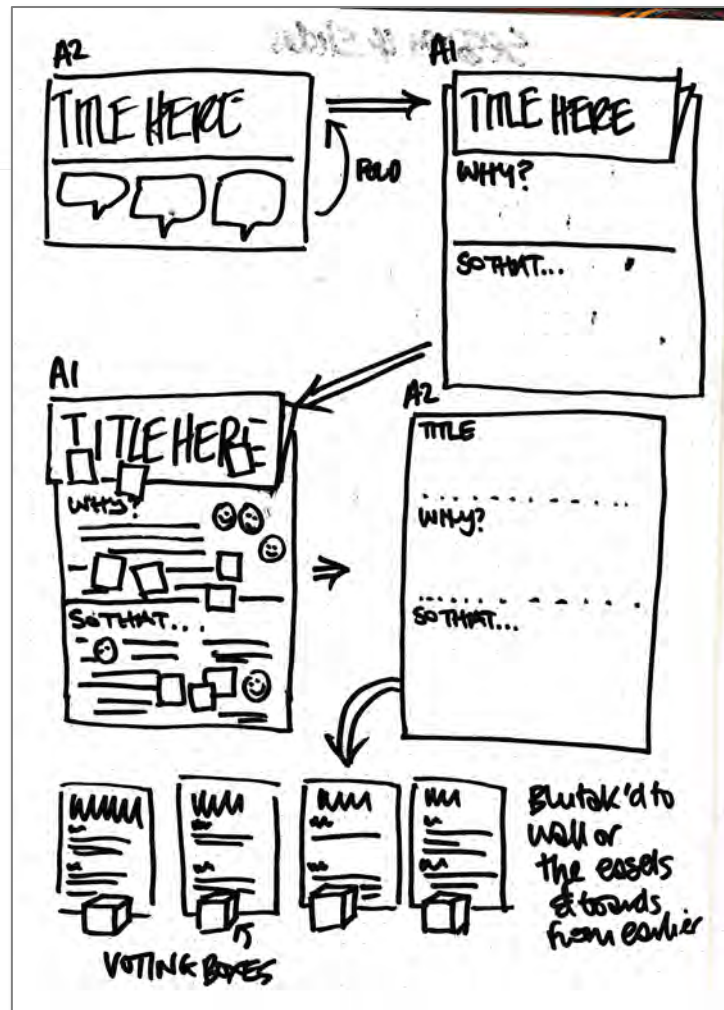 A2
TITLE HERE
FOLD
A1
TITLE HERE
WHY?
SO THAT...
A1
TITLE HERE
WHY?
SO THAT...
A2
TITLE
WHY?
SO THAT...
Blutak'd to
wall or
the easels
& boards
from earlier
VOTING BOXES